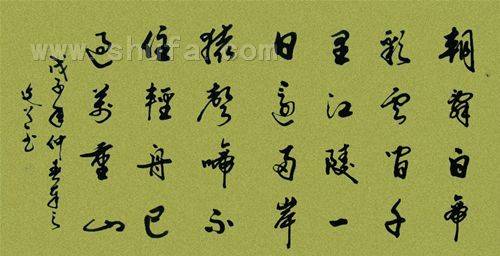 朝辭白帝
彩雲間千
里江陵一
日還兩岸
猿聲啼不
住輕舟已
過萬重山
戊子年仲
书
www.shufa.com